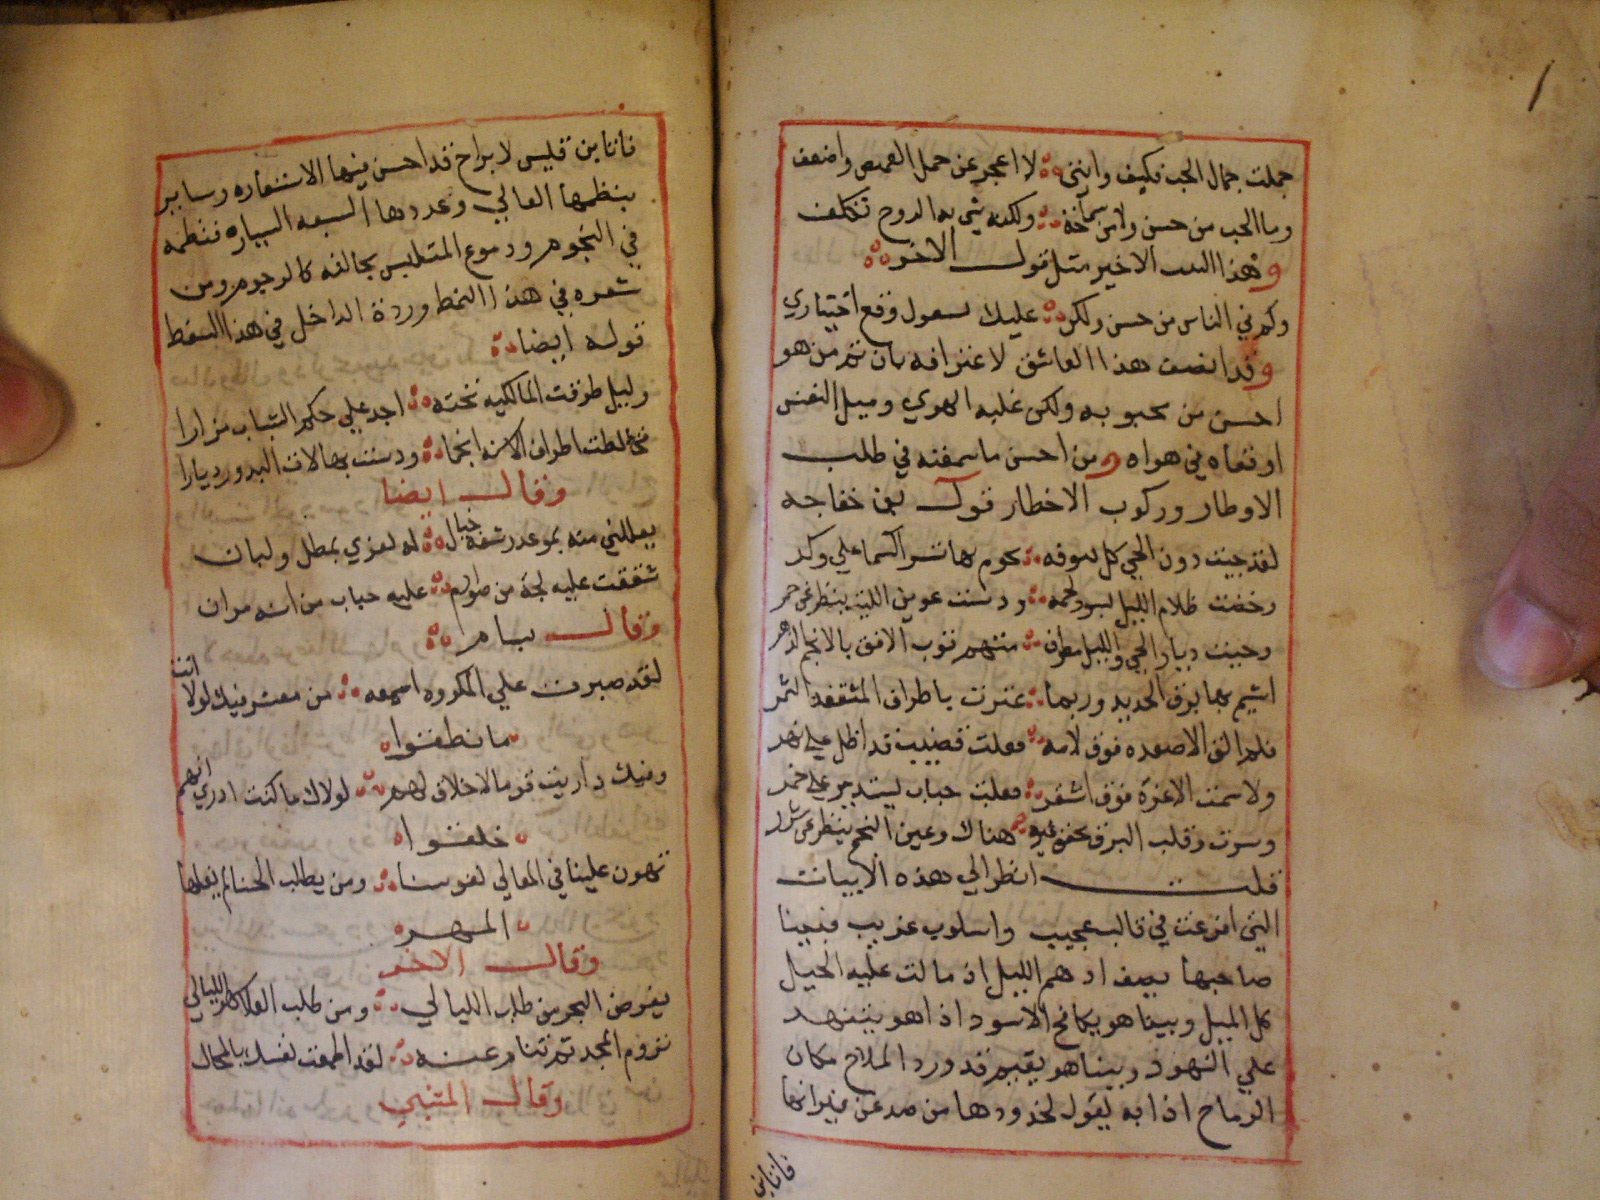 حملت جبال الحب فيك وانني لا اعجز عن حمل القميص واضعف
وما الحب من حسن ولا من سماحة ولكنه شي به الروح تكلف
وهذا البيت الاخير مثل قول الاخر
وكم في الناس من حسن ولكن عليك لسعول وقع اختياري
وقد انصف هذا العاشق لاعترافه بان ثم من هو
احسن من محبوبه ولكن غلبه الهوي وميل النفس
اوقعاه في هواه ومن احسن ما سمعته في طلب
الاوطار وركوب الاخطار قول بن خفاجه
لقد جبت دون الحي كل تنوفه يحوم بها نسر السما علي وكر
وخضت ظلام الليل يسود فحمه ودست عرين الليث ينظر عن جمر
وجيت ديار الحي والليل مطرق منمنم ثوب الافق بالانجم الزهر
اشيم بها برق الحديد وربما عثرت باطراف المثقفه السمر
فلم الق الا صعده فوق لامه فقلت قضيب قد اظل علي نهر
ولا شمت الا غرة فوق اشقر فقلت حباب يستدير علي خمر
وسرت وقلب البرق يخفق غيرة هناك وعين النجم ينظر عن شزر
قلت انظر الي هذه الابيات
التي افرغت في قالب عجيب واسلوب غريب فبينا
صاحبها يصف ادهم الليل اذ مالت عليه الخيل
كل الميل وبينا هو يكافح الاسود اذا هو يتنهد
علي النهود وبينا هو يقيم قدود الملاح مكان
الرماح اذا به يقول لخدودها من صدغن نيرانها
فانا بن
فانا بن قيس لا براح قد احسن فيها الاستعاره وساير
بنظمها العالي وعددها السبعه السياره فنظمه
في النجوم ودموع المتلبس بحالته كالرجوم ومن
شعره في هذا النمط وردة الداخل في هذا السفط
قوله ايضا
وليل طرقت المالكيه تحته اجد علي حكم الشباب مزارا
فخالطت اطراف الاسنه انجما ودست بهالات البدور ديارا
وقال ايضا
يعللني منه بموعد رشفه خيال له لغزي بمطل وليان
شققت عليه لجة من صوارم عليه حباب من اسنه مران
وقال بسام
لقد صبرت علي المكروه اسمعه من معشر فيك لولا انت
ما نطقوا
وفيك داريت قوما لا خلاق لهم لولاك ما كنت ادري انهم
خلقوا
تهون علينا في المعالي نفوسنا ومن يطلب الحسنا لم يغلها
المهر
وقال الاخر
يغوص البحر من طلب الليالي ومن طلب العلا سهر الليالي
تروم المجد ثم تنام عنه لقد اطمعت نفسك بالمحال
وقال المتنبي